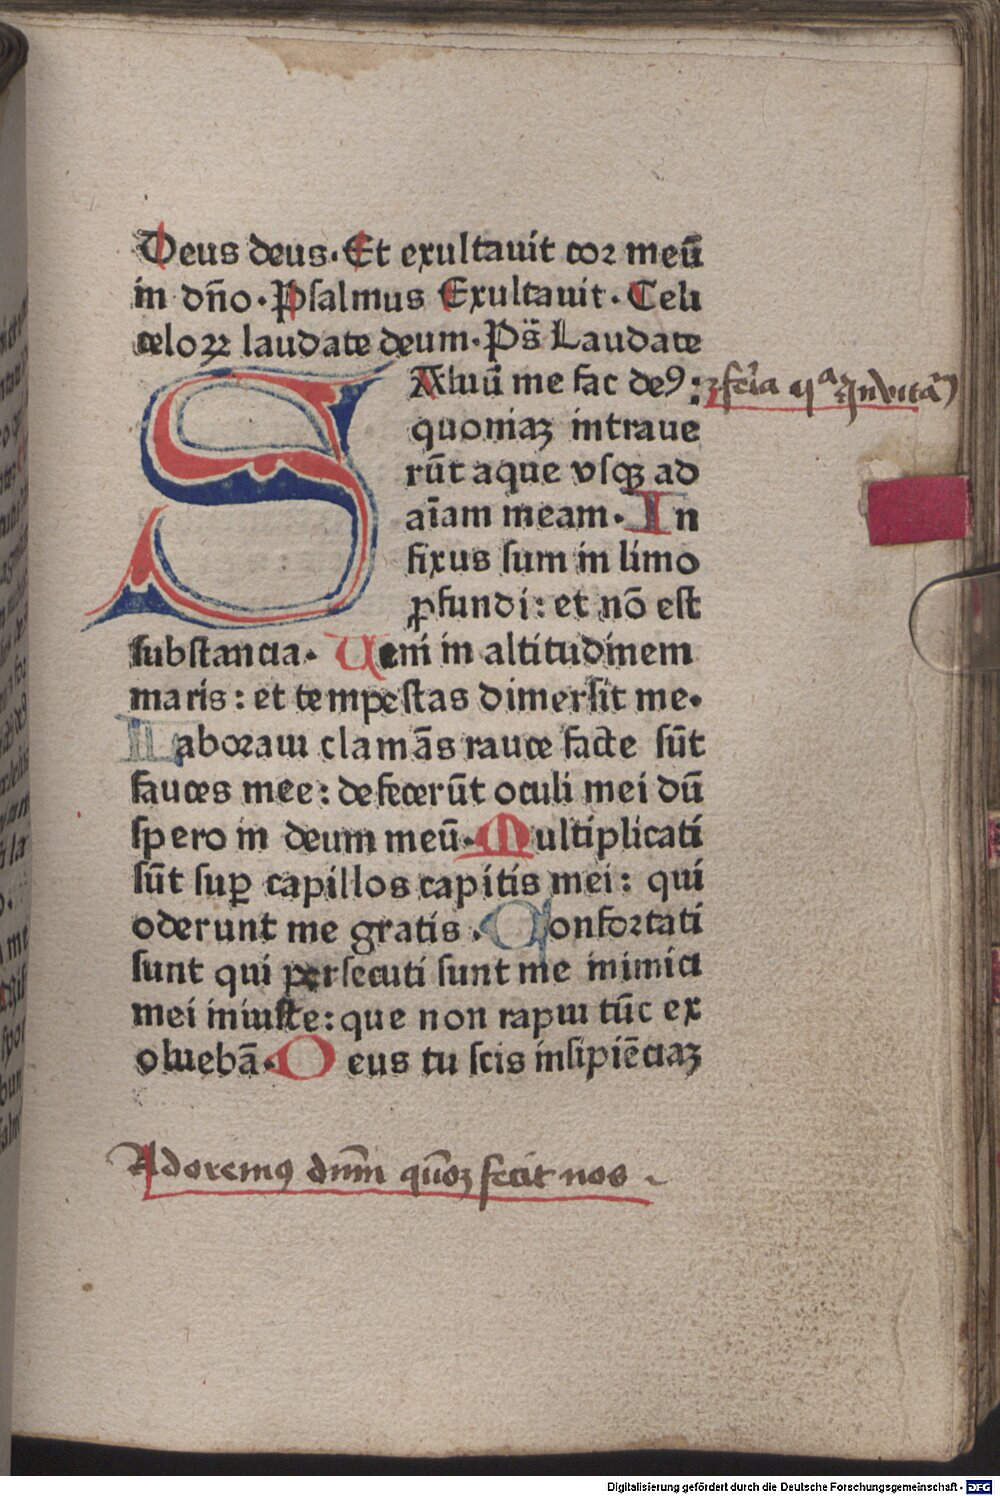 Deus deus. Et exultauit cor meū
in dn̄o. Psalmus Exultauit. Celi
celoꝝ laudate deum. Ps̄ Laudate
SAluū me fac deꝰ:
quoniaꝫ intraue
rūt aque vsqꝫ ad
aīam meam. In
fixus sum in limo
ꝓfundi: et nō est
substancia. Ueni in altitudinem
maris: et tempestas dimersit me.
Laboraui clamās rauce facte sūt
fauces mee: defecerūt oculi mei dū
spero in deum meū. Multiplicati
sūt suꝑ capillos capitis mei: qui
oderunt me gratis. Confortati
sunt qui persecuti sunt me inimici
mei iniuste: que non rapui tūc ex
oluebā. Deus tu scis insipiēciaꝫ
feria ijᵃ Inuita
Adoremꝰ dnm̄ qūoꝫ fecit nos
Digitalisierung gefördert durch die Deutsche Forschungsgemeinschaft - DFG